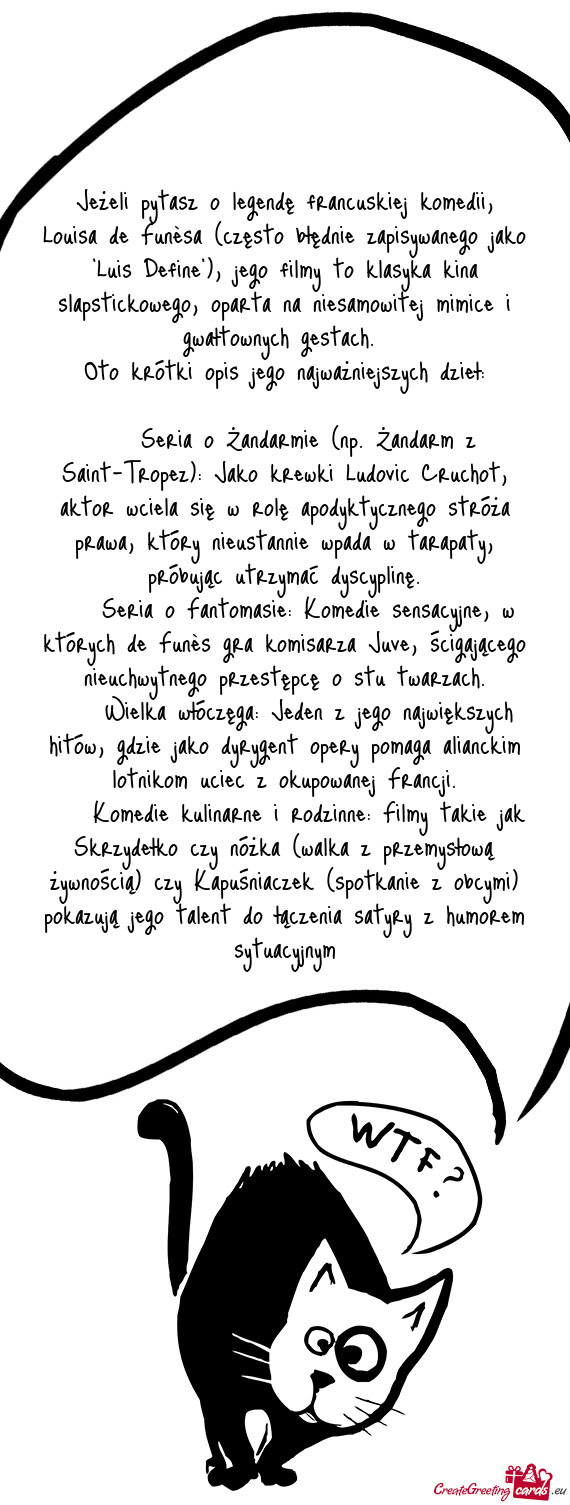 Jeżeli pytasz o legendę francuskiej komedii,
Louisa de Funèsa (często błędnie zapisywanego jako
"Luis Define"), jego filmy to klasyka kina
slapstickowego, oparta na niesamowitej mimice i
gwałtownych gestach.
Oto krótki opis jego najważniejszych dzieł:
Seria o Żandarmie (np. Żandarm z
Saint-Tropez): Jako krewki Ludovic Cruchot,
aktor wciela się w rolę apodyktycznego stróża
prawa, który nieustannie wpada w tarapaty,
próbując utrzymać dyscyplinę.
Seria o Fantomasie: Komedie sensacyjne, w
których de Funès gra komisarza Juve, ścigającego
nieuchwytnego przestępcę o stu twarzach.
Wielka włóczęga: Jeden z jego największych
hitów, gdzie jako dyrygent opery pomaga alianckim
lotnikom uciec z okupowanej Francji.
Komedie kulinarne i rodzinne: Filmy takie jak
Skrzydełko czy nóżka (walka z przemysłową
żywnością) czy Kapuśniaczek (spotkanie z obcymi)
pokazują jego talent do łączenia satyry z humorem
sytuacyjnym
WTF?
CreateGreetingcards.eu